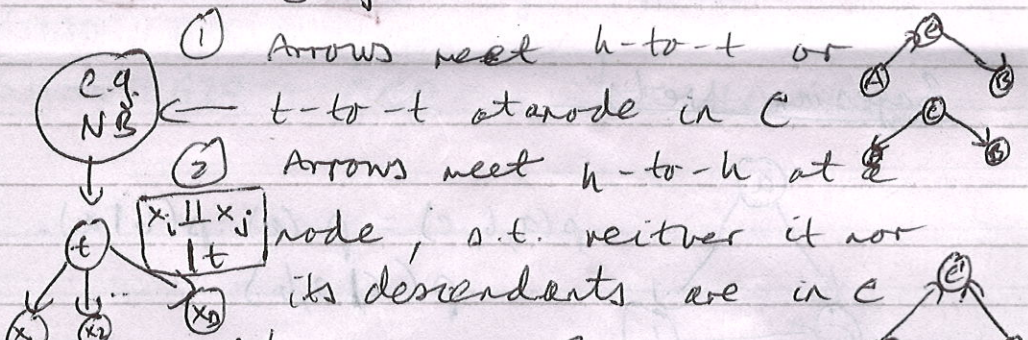 ① Arrows meet h-to-t or
t-to-t at a node in C
② Arrows meet h-to-h at a
node, s.t. neither it nor
its descendants are in C
e.g.
NB
t
x₁ x₂ ... x_D
xᵢ ⫫ xⱼ
| t
C
A B
C
B
C